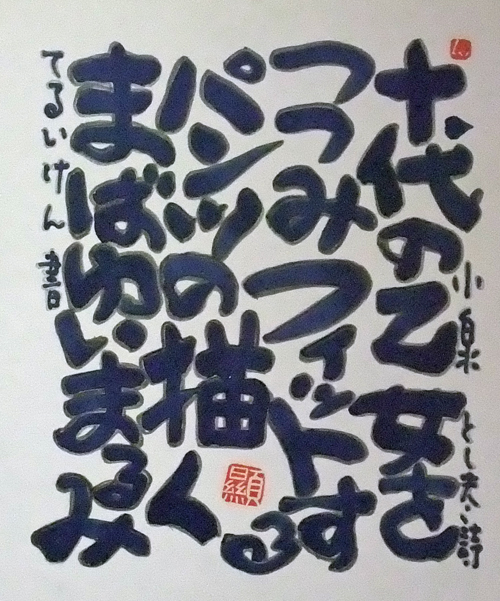 十代の乙女を
小泉 とし夫・詩
つつみフィットする
パンツの描く
まばゆいまるみ
てるいけん 書